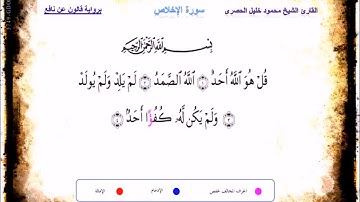 القارئ الشيخ محمود خليل الحصري
سورة الإخلاص
برواية قالون عن نافع
بِسْمِ اللَّهِ الرَّحْمَٰنِ الرَّحِيمِ
قُلْ هُوَ اللَّهُ أَحَدٌ ۝١ اللَّهُ الصَّمَدُ ۝٢ لَمْ يَلِدْ وَلَمْ يُولَدْ
۝٣ وَلَمْ يَكُن لَّهُ كُفُؤًا أَحَدٌ ۝٤
الإمالة
الإدغام